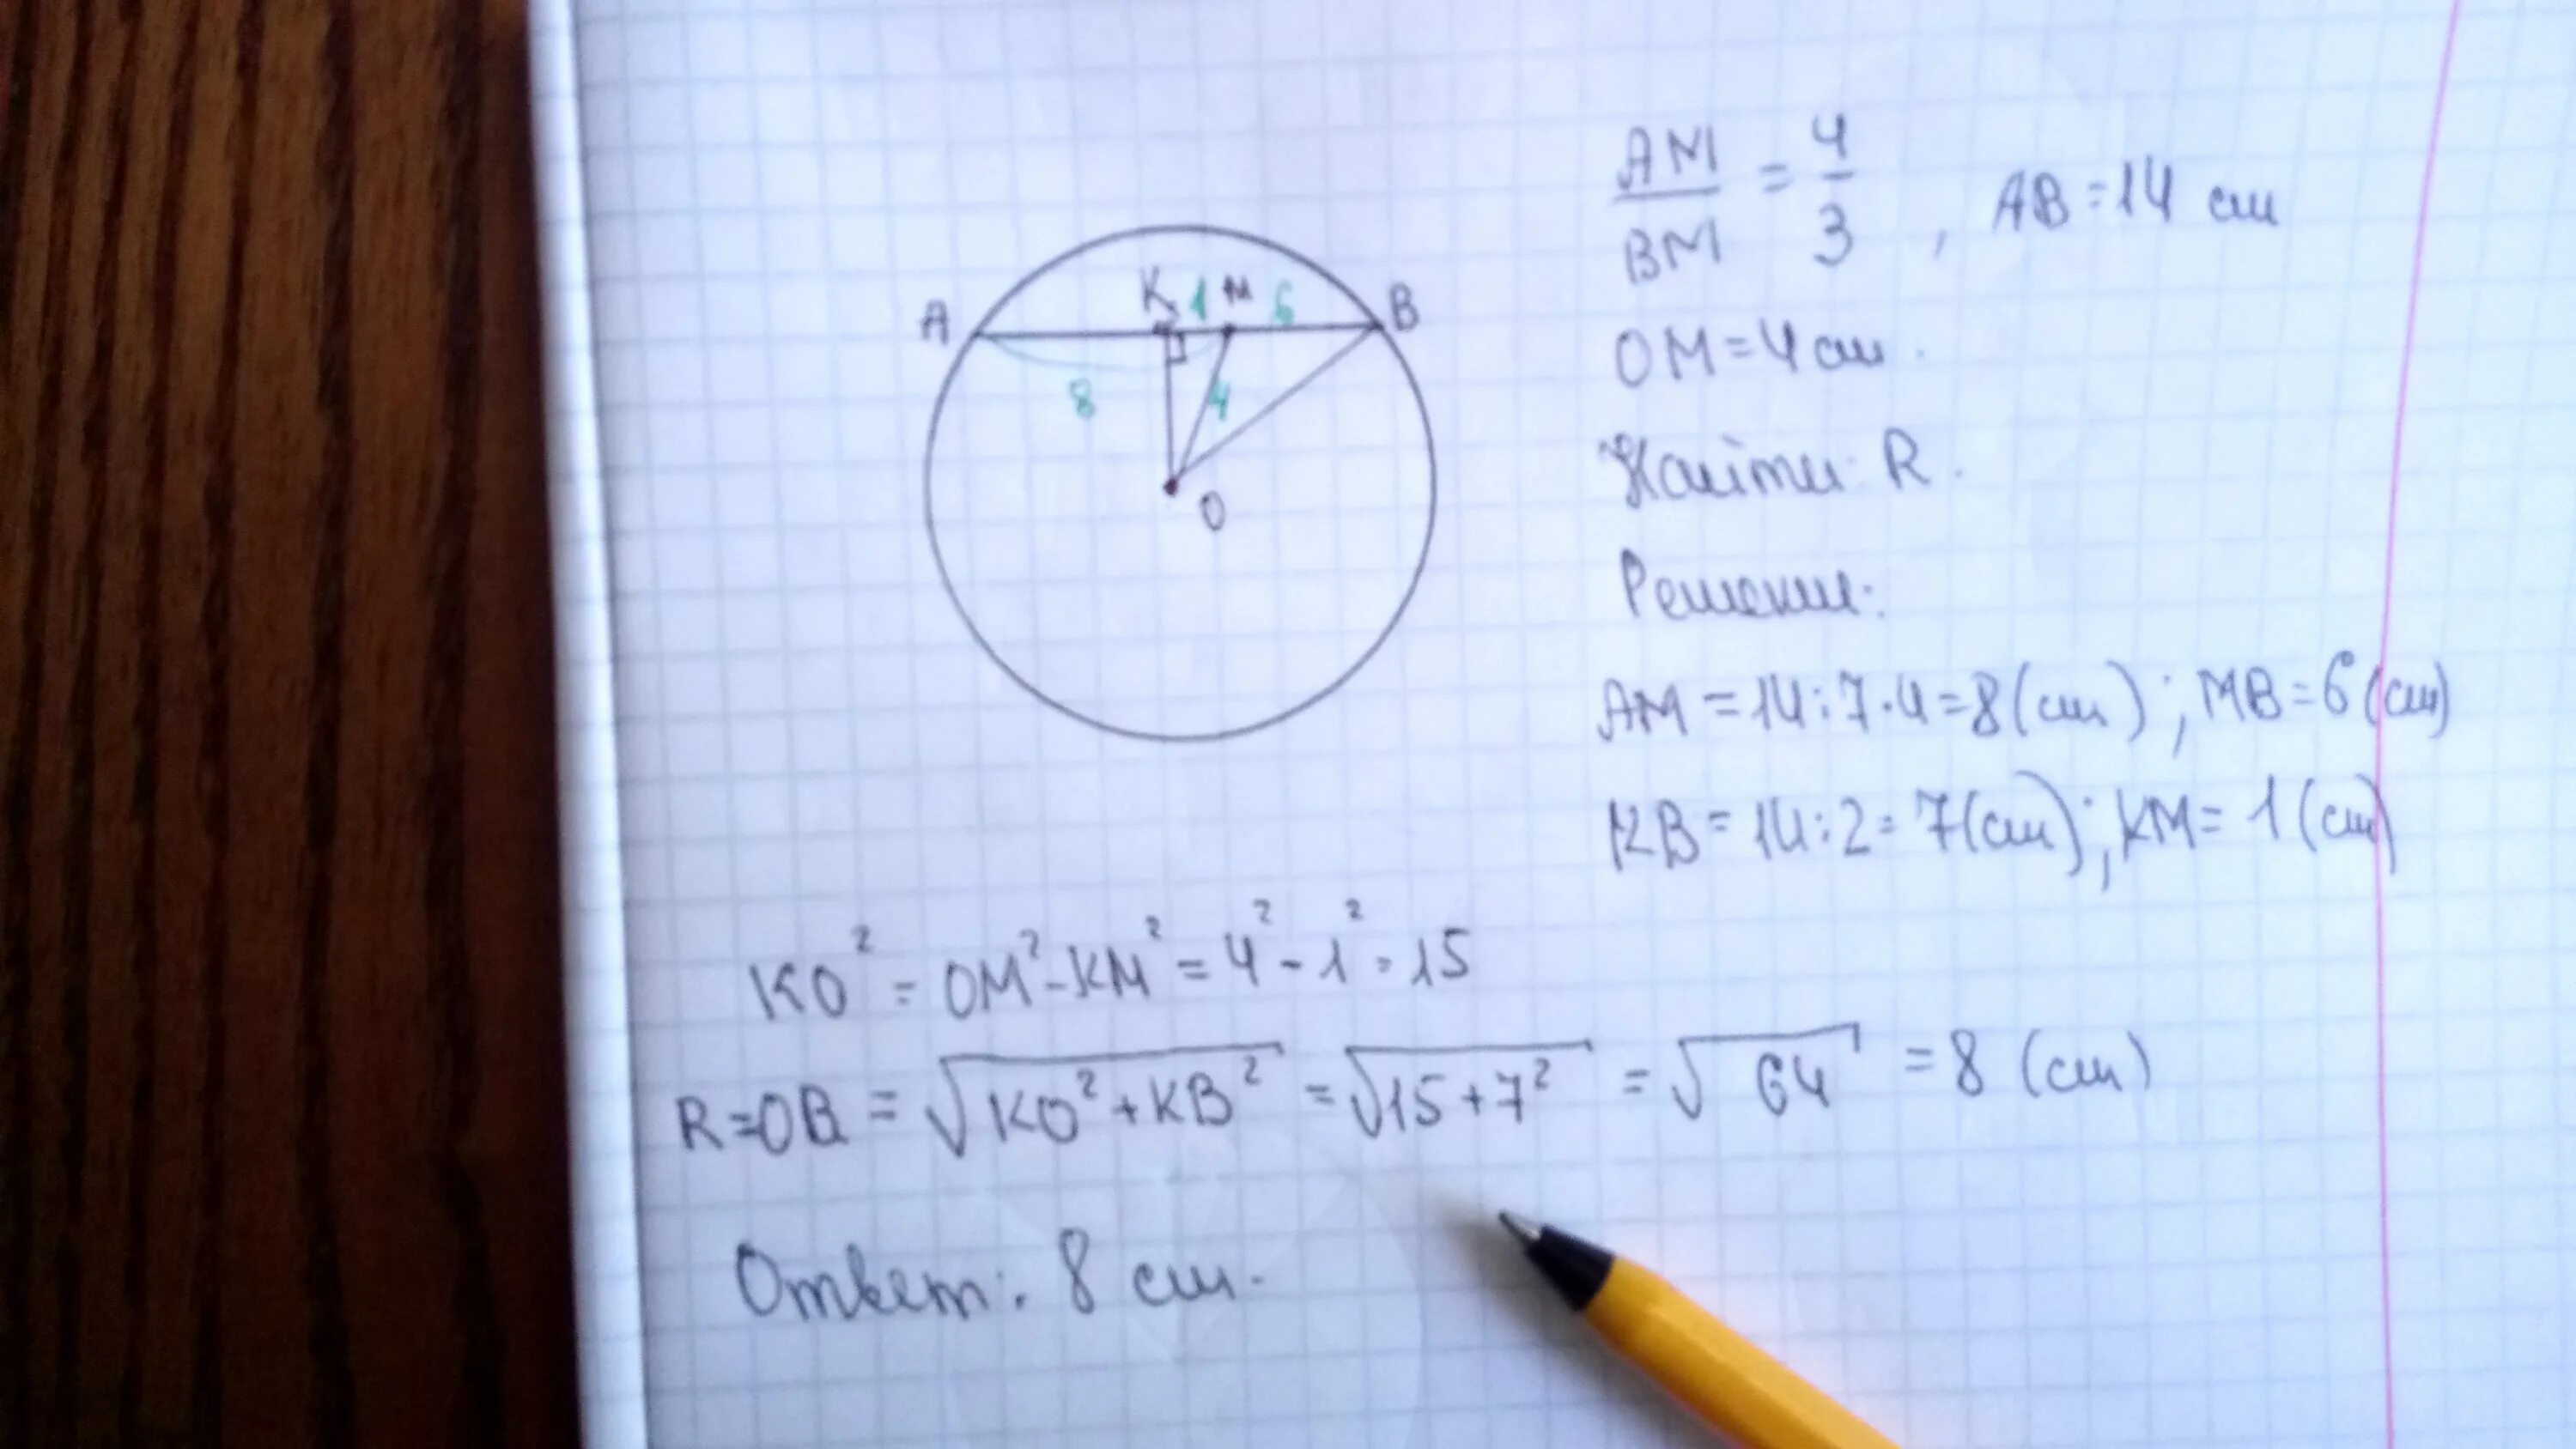 A K 1 M 6 B
8 4
O
AM/BM = 4/3 , AB = 14 см
OM = 4 см.
Найти: R.
Решение:
AM = 14 : 7 · 4 = 8 (см) ; MB = 6 (см)
KB = 14 : 2 = 7 (см) ; KM = 1 (см)
KO² = OM² - KM² = 4² - 1² = 15
R = OB = √(KO² + KB²) = √(15 + 7²) = √64 = 8 (см)
Ответ: 8 см.